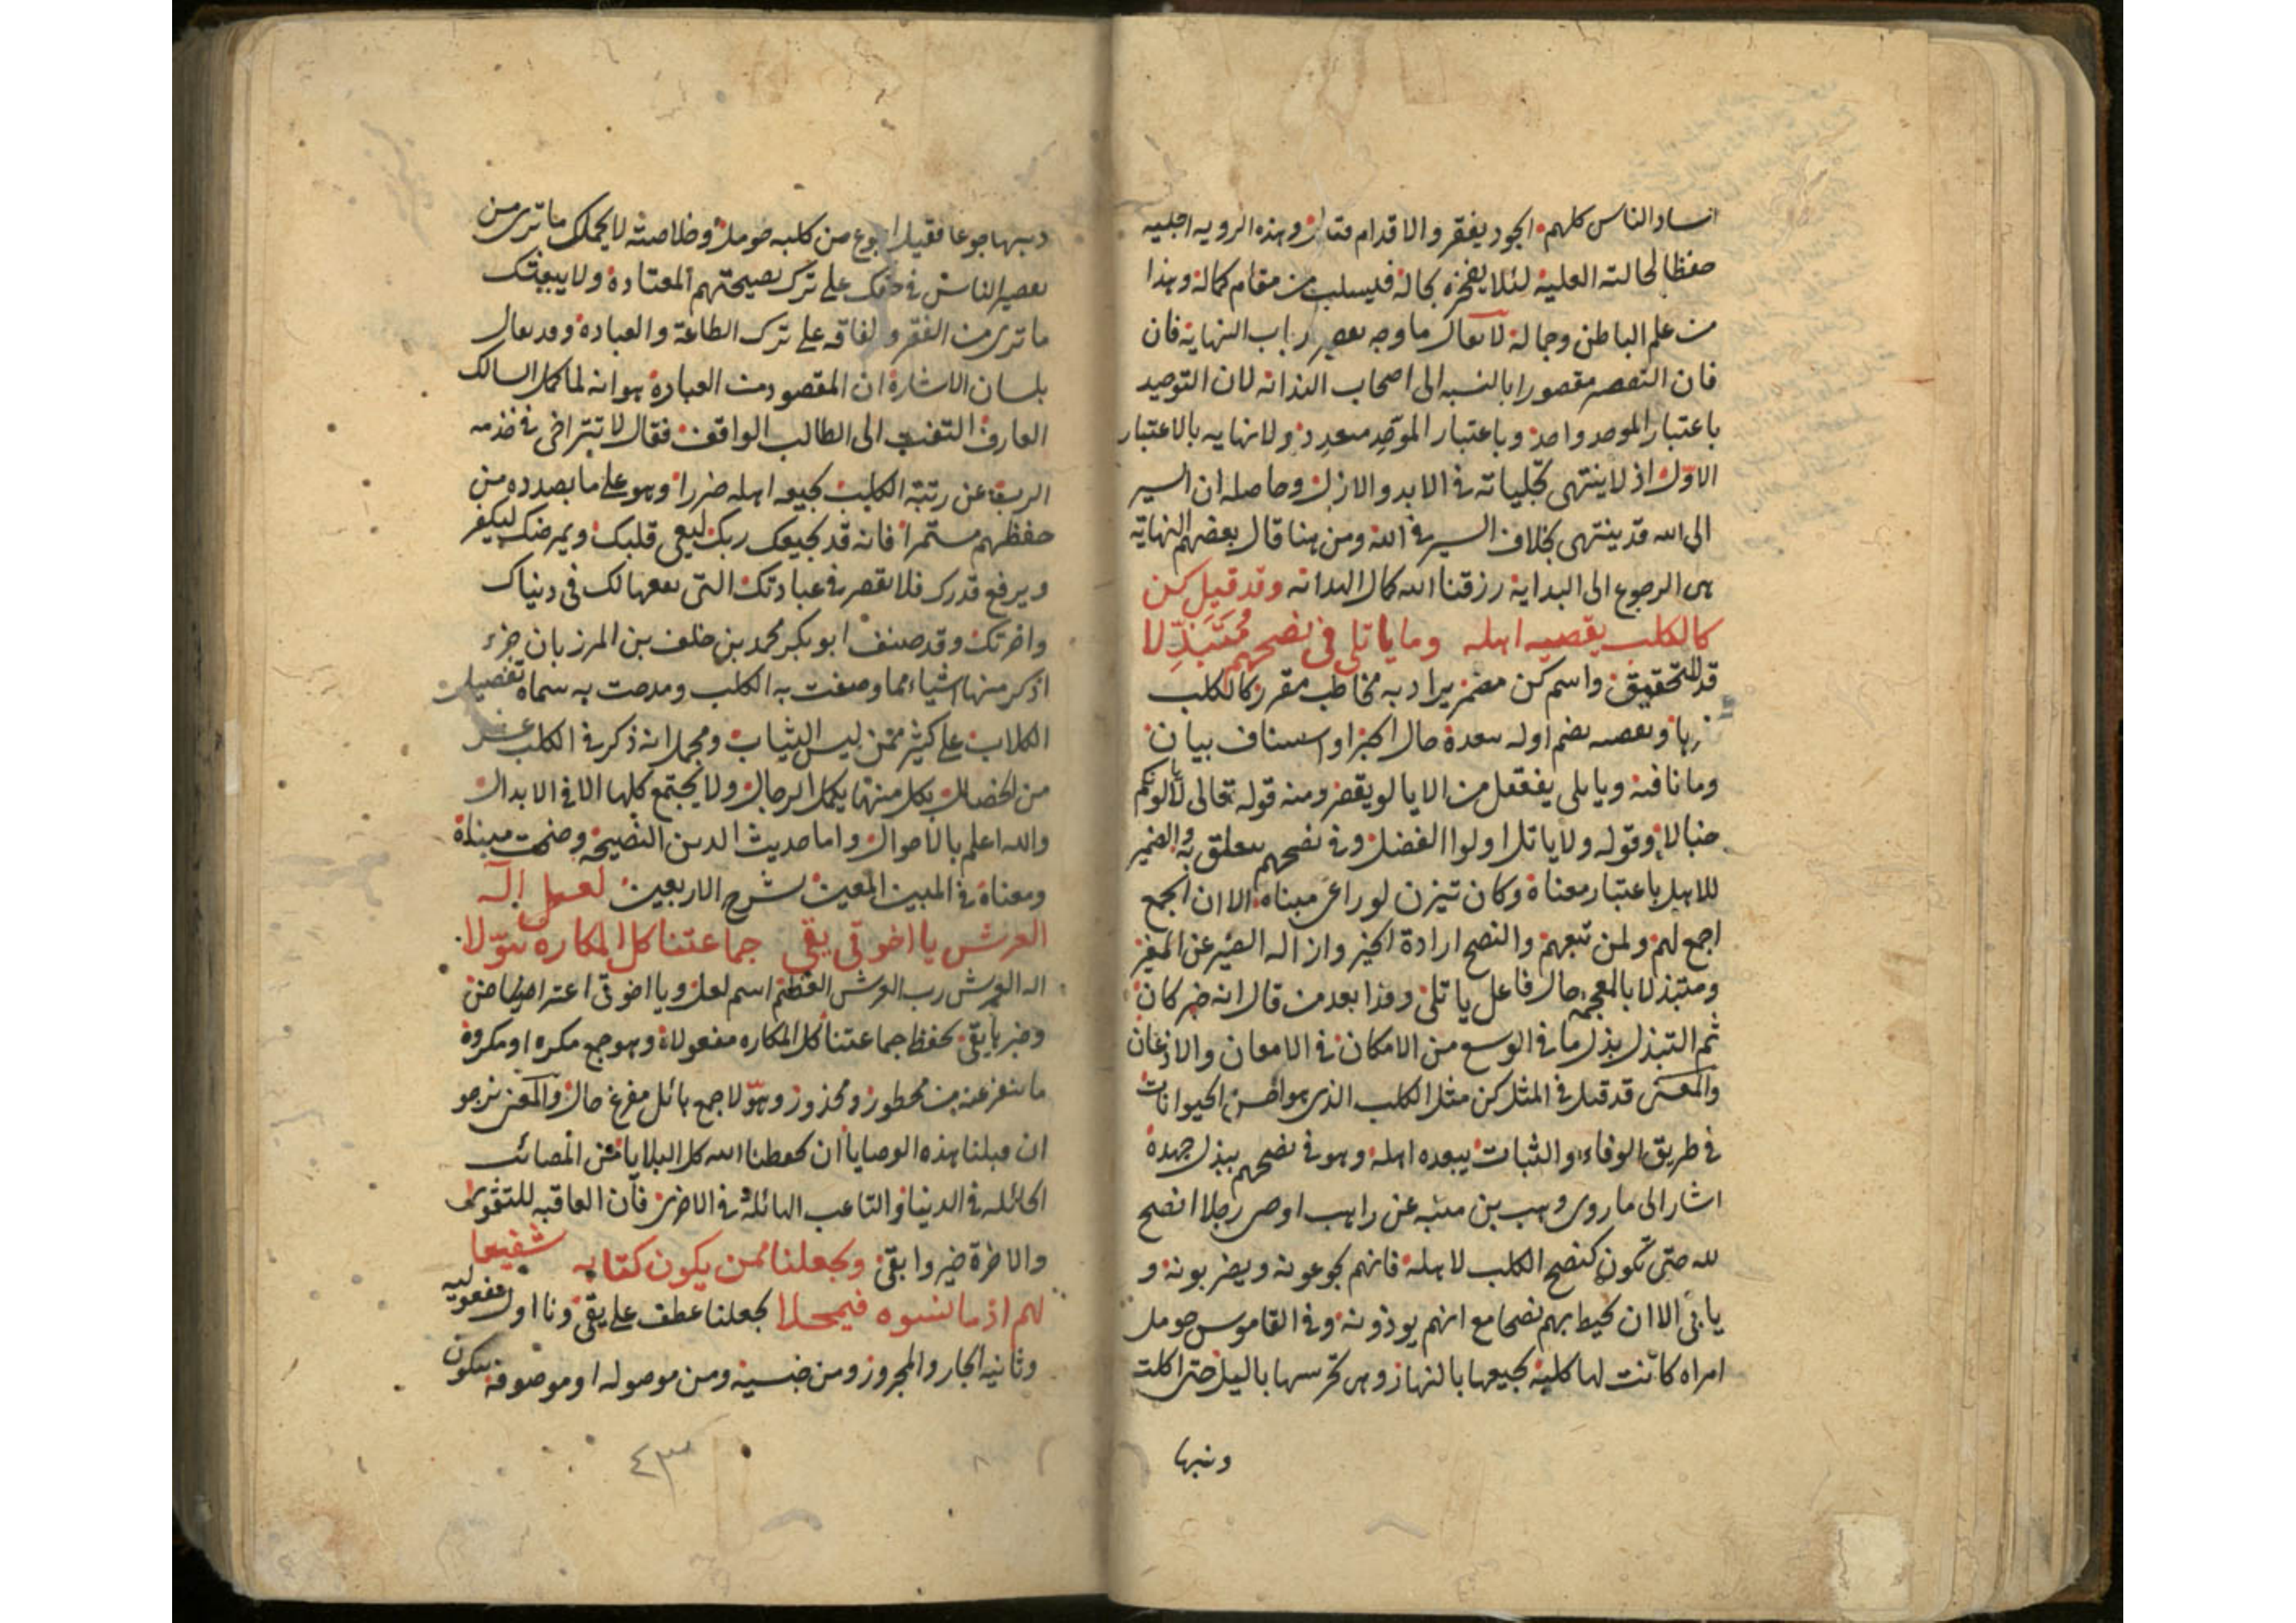 ساد الناس كلهم الجود يفقر والاقدام قتال وهذه الرويه اجليه
حفظا لحالته العلية لئلا يفخره بحاله فيسلب من مقام كماله وهذا
من علم الباطن وجماله لا يقال ما وجه بعض ارباب النهاية فان
فان التقصير مقصورا بالنسبه الى اصحاب البدايه لان التوحيد
باعتبار الموحد واحد وباعتبار الموحد متعدد ولا نهايه بالاعتبار
الاول اذ لا ينتهى تجلياته فى الابد والازل وحاصله ان السير
الى الله قد ينتهى بخلاف السير فى الله ومن هنا قال بعضهم النهاية
هى الرجوع الى البداية رزقنا الله كمال البدايه وقد قيل كن
كالكلب يقصيه اهله وما ياتلى فى نصحهم متبذلا
قد للتحقيق واسم كن مضمر يراد به مخاطب مقرر كالكلب
ويقصيه بضم اوله يبعده حال الخبر او استيناف بيان
وما نافيه وياتلى يفتعل من الايالو يقصر ومنه قوله تعالى لا يألونكم
خبالا وقوله ولا ياتل اولوا الفضل وفى نصحهم يتعلق به والضمير
للاهل باعتبار معناه وكان تيزن لو راعى مبناه الا ان الجمع
اجمع لهم ولمن تبعهم والنصح ارادة الخير وازاله الضير عن الغير
ومتبذلا بالمعجمه حال فاعل ياتلى وهذا بعد من قال انه خبر كان
ثم التبذل بذل ما فى الوسع من الامكان فى الامعان والاذعان
والمعنى قد قيل فى المثل كن مثل الكلب الذى هو اخس الحيوانات
فى طريق الوفاء والثبات يبعده اهله وهو فى نصحهم يبذل جهده
اشار الى ما روى وهب بن منبه عن راهب اوصى رجلا انصح
لله حتى تكون كنصح الكلب لاهله فانهم يجوعونه ويضربونه و
يابى الا ان يحيط بهم نصحا مع انهم يوذونه وفى القاموس حومل
امراه كانت لها كلبة يجيعها بالنهار وهى تحرسها بالليل حتى اكلت
وذنبها
ذنبها جوعا فقيل اجوع من كلبه حومل وخلاصته لا يحملك ما ترى من
تقصير الناس فى حقك على ترك نصيحتهم المعتادة ولا يبعثك
ما ترى من الفقر والفاقه على ترك الطاعة والعبادة وقد يقال
بلسان الاشارة ان المقصود من العبارة هو انه لما كمل السالك
العارف التفت الى الطالب الواقف فقال لا تتراخى فى خدمه
الرب عن رتبة الكلب يجيعه اهله ضررا وهو على ما بصدده من
حفظهم مستمرا فانه قد يجيعك ربك ليعى قلبك ويمرضك ليكفر
ويرفع قدرك فلا تقصر فى عبادتك التى نفعها لك فى دنياك
واخرتك وقد صنف ابو بكر محمد بن خلف بن المرزبان جزء
اذكر منها اشياء مما وصفت به الكلب ومدحت به سماه تفضيل
الكلاب على كثير ممن لبس الثياب ومجمله انه ذكر فى الكلب عشر
من الخصال بكل منها يكمل الرجال ولا يجتمع كلها الا فى الابدال
والله اعلم بالاحوال واما حديث الدين النصيحة وضحت مبناه
ومعناه فى المبين المعين لشرح الاربعين لعل اله
العرش يا اخوتى يقى جماعتنا كل المكاره هولا
اله العرش رب العرش العظيم اسم لعل ويا اخوتى اعتراضيا حن
وخبرها يقى يحفظ جماعتنا كل المكاره مفعولاه وهو جمع مكره او مكروه
ما ينفر عنه من محظور ومحذور وهولا جمع هائل مفرع حال والمعنى نرجو
ان قبلنا هذه الوصايا ان يحفظنا الله كل البلايا من المصائب
الحائله فى الدنيا والتاعب الهائله فى الاخرى فان العاقبه للتقوى
والاخرة خير وابقى ويجعلنا ممن يكون كتابه شفيعا
لهم اذ ما نسوه فيمحلا يجعلنا عطف على يقى ونا اول مفعوليه
وثانيه الجار والمجرور ومن جنسيه ومن موصوله او موصوفه يكون
٤٣